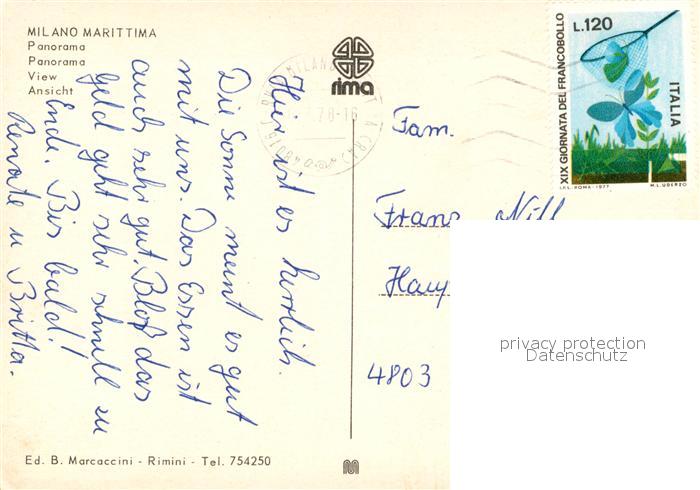 MILANO MARITTIMA
Panorama
Panorama
View
Ansicht
rima
Hier ist es herrlich.
Die Sonne meint es gut
mit uns. Das Essen ist
auch sehr gut. Bloß das
Geld geht sehr schnell zu
Ende. Bis bald!
Renate u Britta.
Ed. B. Marcaccini - Rimini - Tel. 754250
MILANO
78-16
48016
L.120
XIX GIORNATA DEL FRANCOBOLLO
ITALIA
I.P.S.-ROMA-1977
M.L. UDERZO
Fam.
Franz Nill
Haup
4803
privacy protection
Datenschutz